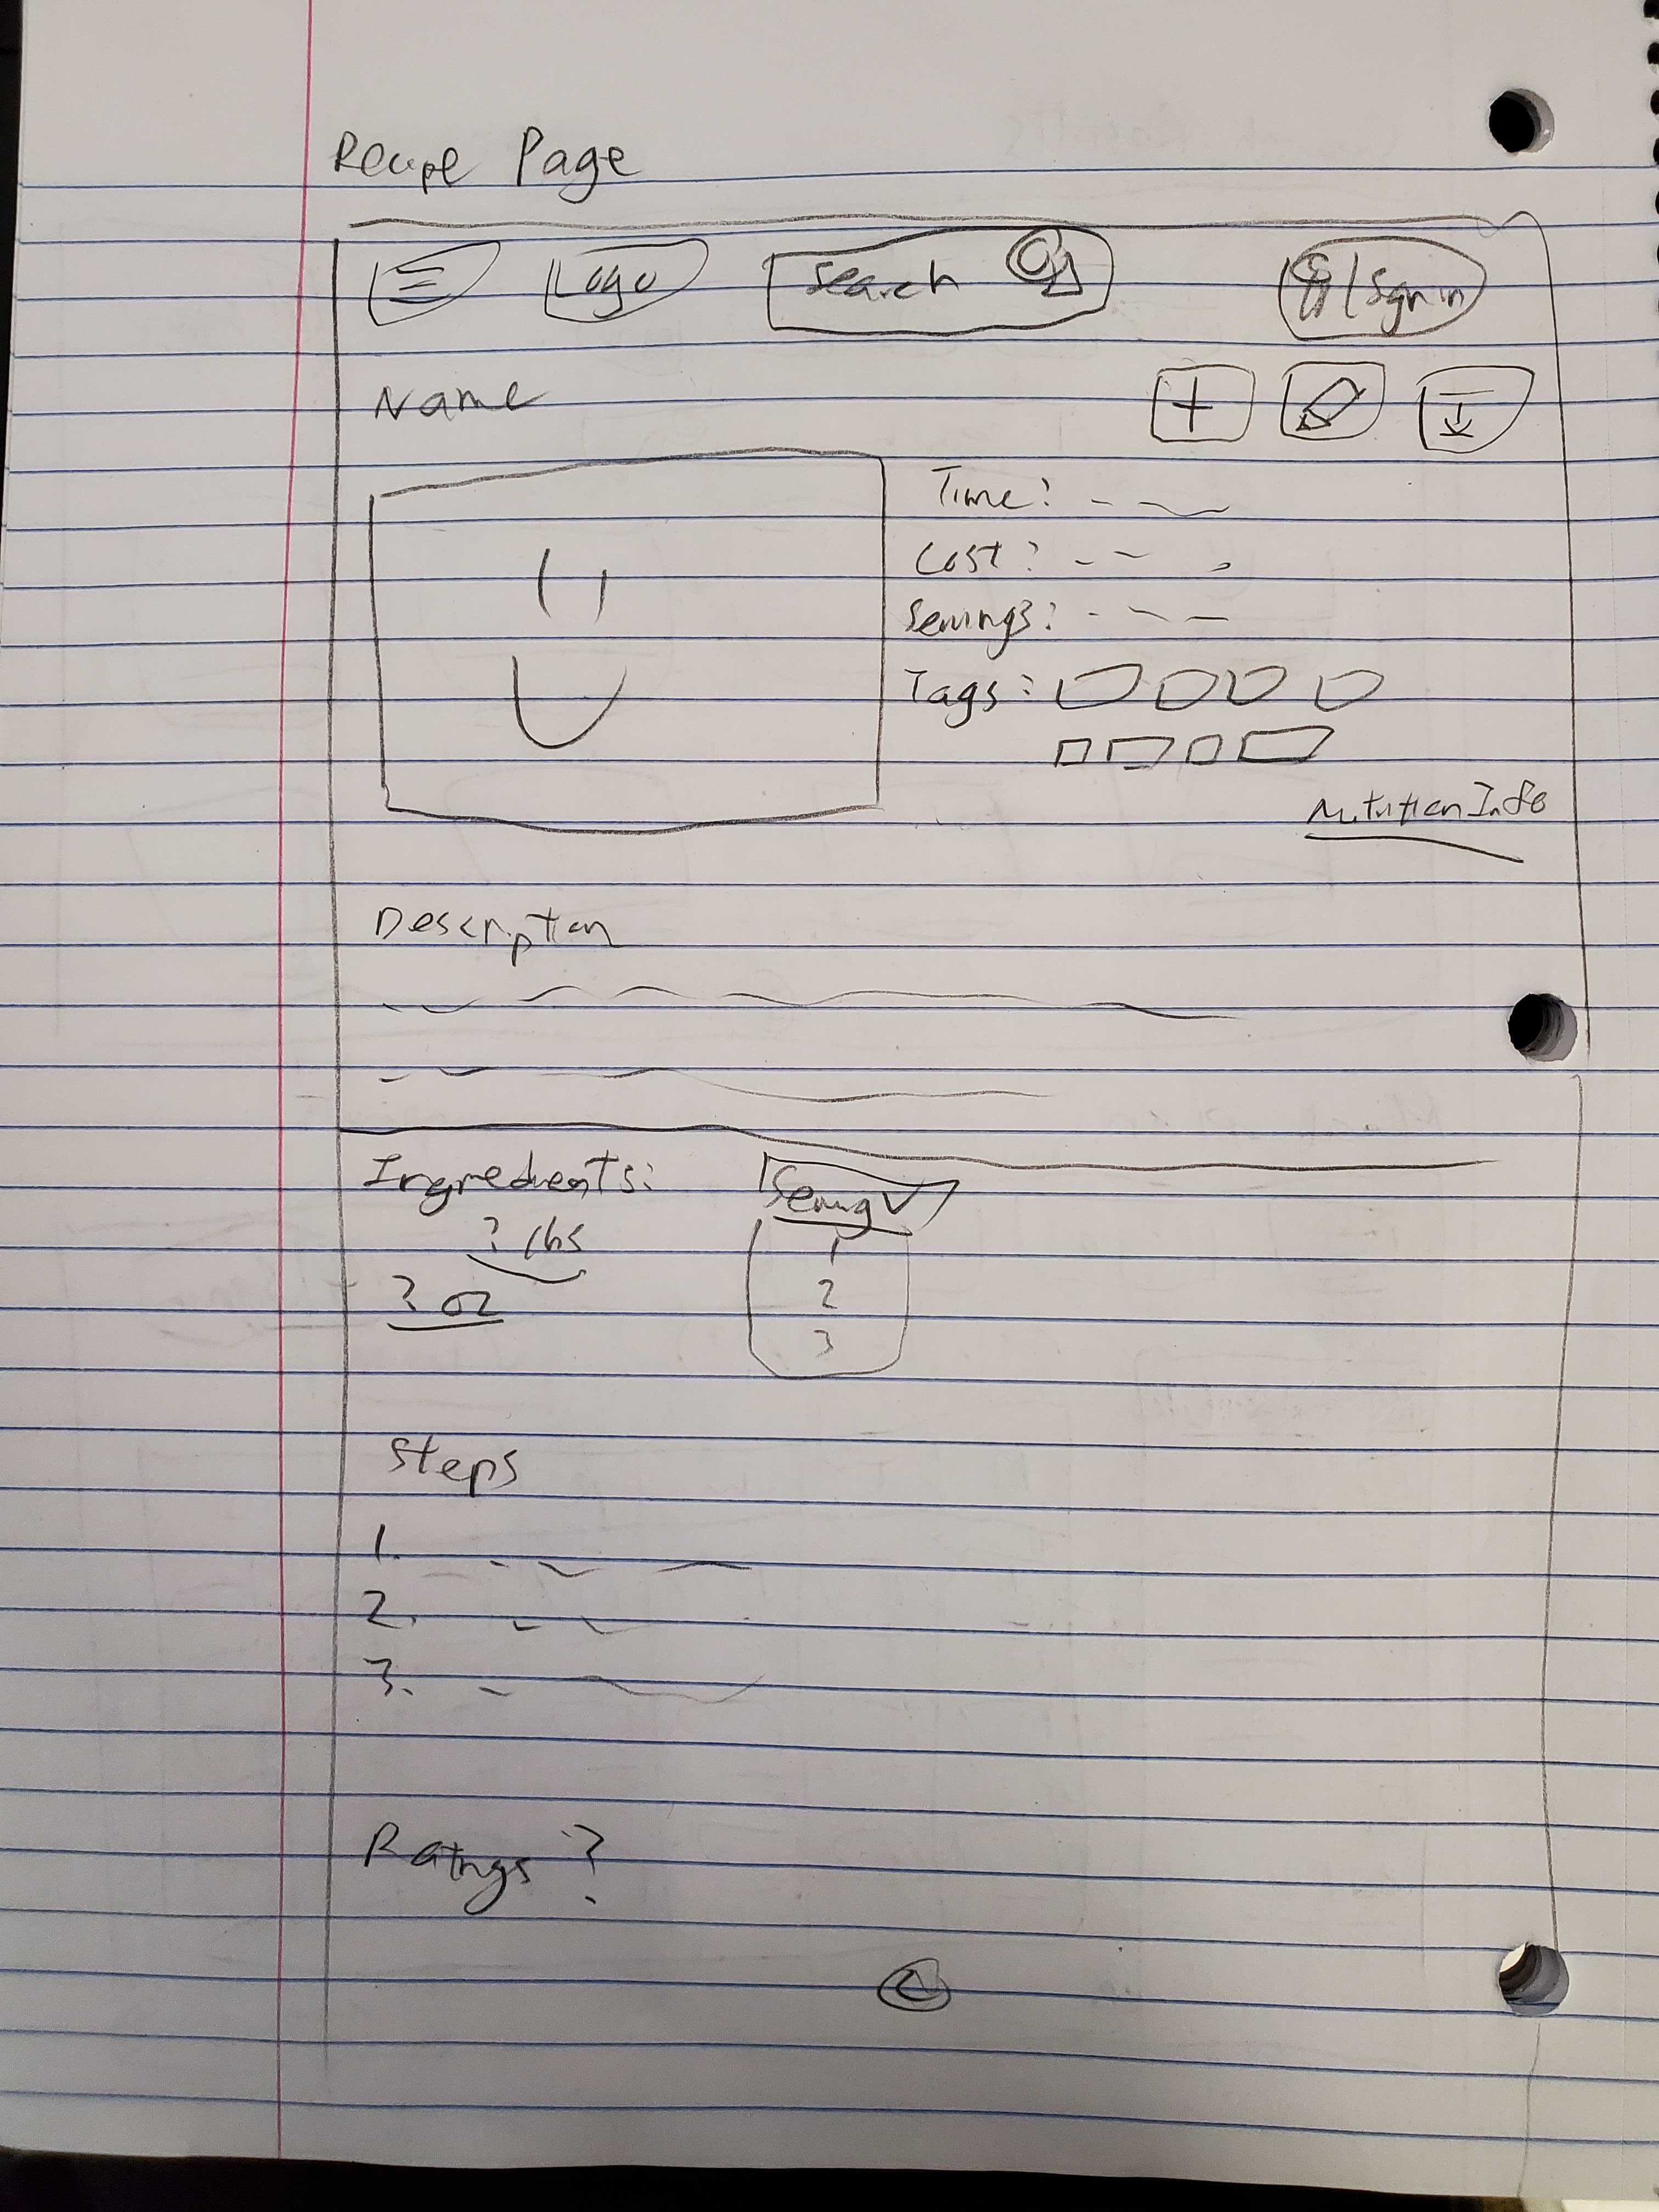 Recipe Page
Logo Search | Sign in
Name
Time:
Cost:
Servings:
Tags:
Nutrition Info
Description
Ingredients: Serving
? lbs 1
? oz 2
3
Steps
1.
2.
3.
Ratings?